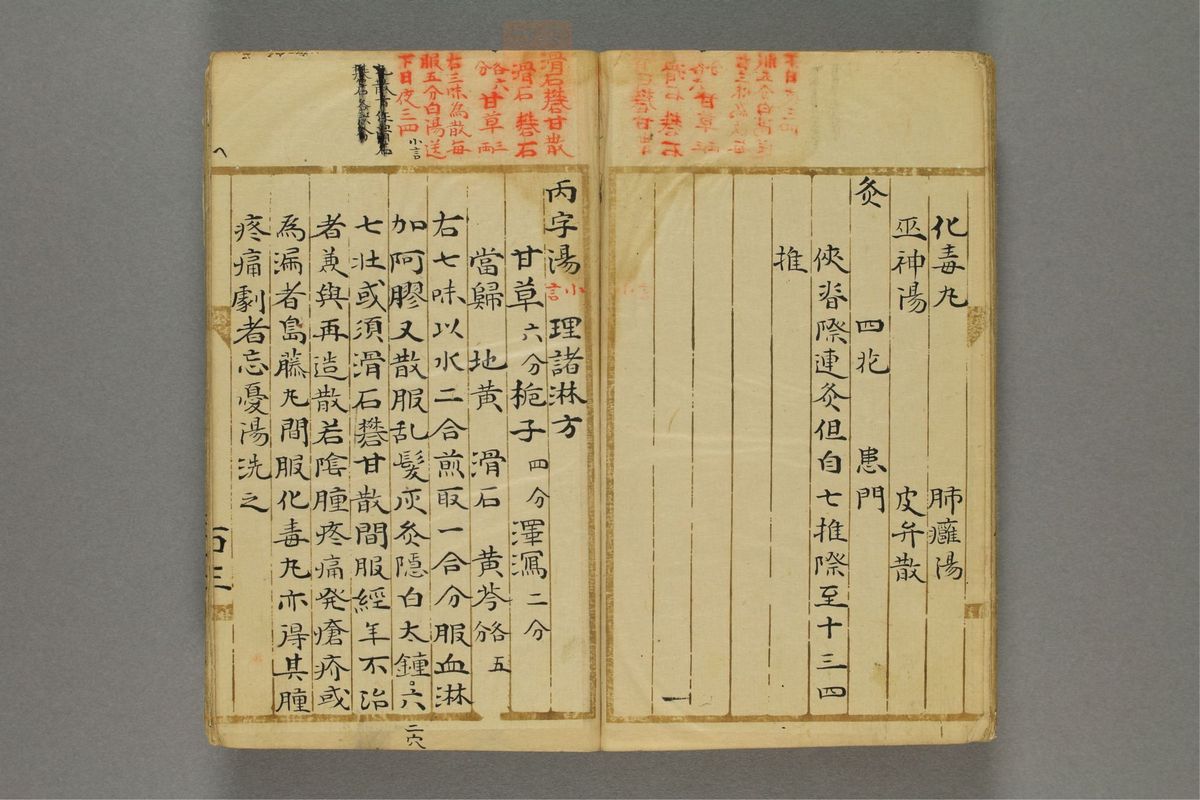 化毒丸 肺癰湯
巫神湯 皮弁散
灸 四花 患門
俠脊際連灸但自七推際至十三四
推
滑石礬甘散
滑石 礬石
各六分 甘草三両
右三味為散毎
服五分白湯送
下日夜三四
小言
丙字湯 小言 理諸淋方
甘草六分 梔子四分 澤瀉二分
當歸 地黄 滑石 黄芩各五分
右七味以水二合煎取一合分服血淋
加阿膠又散服乱髮灰灸隠白太鐘各六
二穴
七壮或須滑石礬甘散間服經年不治
者兼與再造散若陰腫疼痛発瘡疥或
為漏者島藤丸間服化毒丸亦得其腫
疼痛劇者忘憂湯洗之